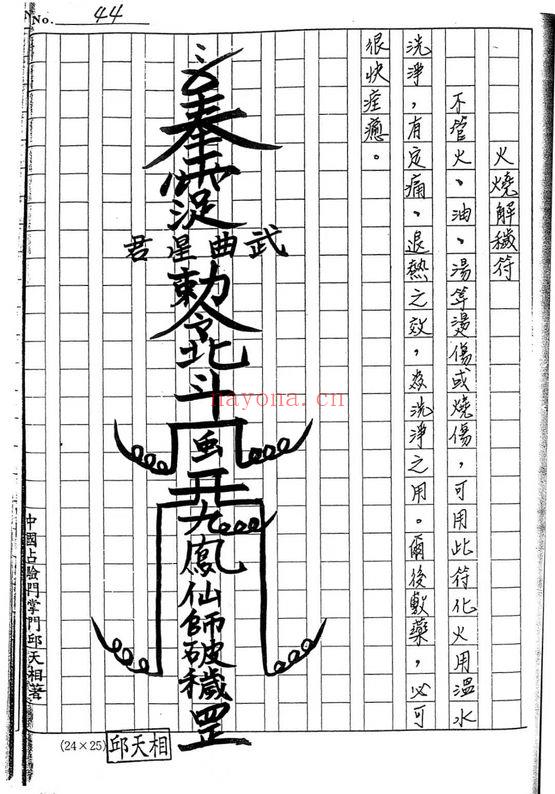 No. 44
火燒解穢符
不管火、油、湯等燙傷或燒傷，可用此符化火用溫水
洗淨，有定痛、退熱之效，為洗淨之用。爾後敷藥，必可
很快痊癒。
奉
武曲星君
敕令北斗
九鳳仙師破穢罡
中國占驗門掌門邱天相著
(24×25)
邱天相
nayona.cn